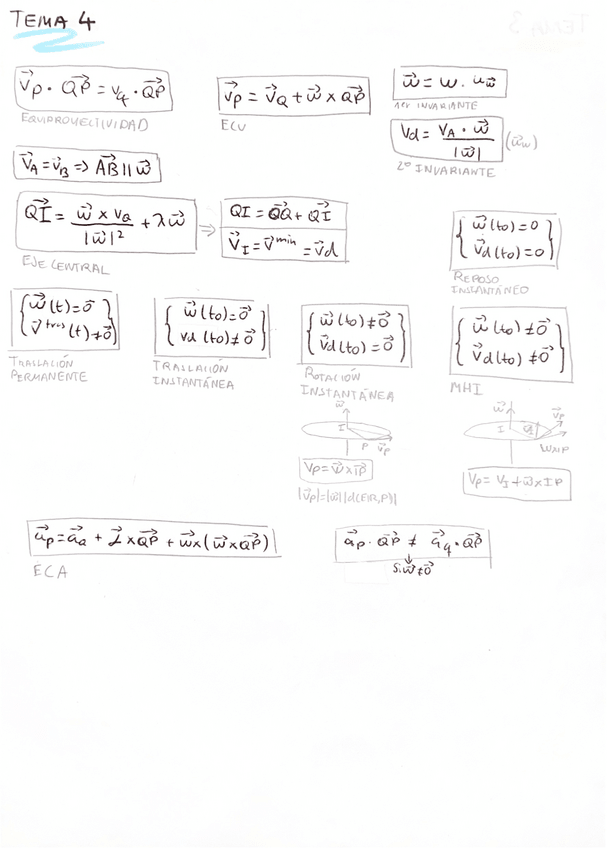 TEMA 4
v⃗P · QP⃗ = vq · QP⃗
EQUIPROYECTIVIDAD
v⃗P = v⃗Q + ω⃗ x QP⃗
ECV
ω⃗ = ω · uω⃗
1er INVARIANTE
Vd = VA · ω⃗ / |ω⃗| (u⃗ω)
2º INVARIANTE
V⃗A = v⃗B => AB⃗ || ω⃗
QI⃗ = ω⃗ x vQ / |ω⃗|² + λω⃗
EJE CENTRAL
⇒
QI = OQ⃗ + QI⃗
V⃗I = V⃗min = v⃗d
{ ω⃗(to) = 0
v⃗d(to) = 0 }
REPOSO
INSTANTÁNEO
{ ω⃗(t) = 0⃗
v⃗tras(t) ≠ 0⃗ }
TRASLACIÓN
PERMANENTE
{ ω⃗(to) = 0⃗
vd(to) ≠ 0⃗ }
TRASLACIÓN
INSTANTÁNEA
{ ω⃗(to) ≠ 0⃗
v⃗d(to) = 0⃗ }
ROTACIÓN
INSTANTÁNEA
{ ω⃗(to) ≠ 0⃗
v⃗d(to) ≠ 0⃗ }
MHI
ω⃗
I
P
v⃗P
VP = ω⃗ x IP⃗
|v⃗P| = |ω⃗| |d(EIR,P)|
ω⃗
I
v⃗P
WxIP
VP = VI + ω⃗ x IP
a⃗P = a⃗Q + α⃗ x QP⃗ + ω⃗ x (ω⃗ x QP⃗)
ECA
a⃗P · QP⃗ ≠ a⃗q · QP⃗
↓
Si ω⃗ ≠ 0⃗